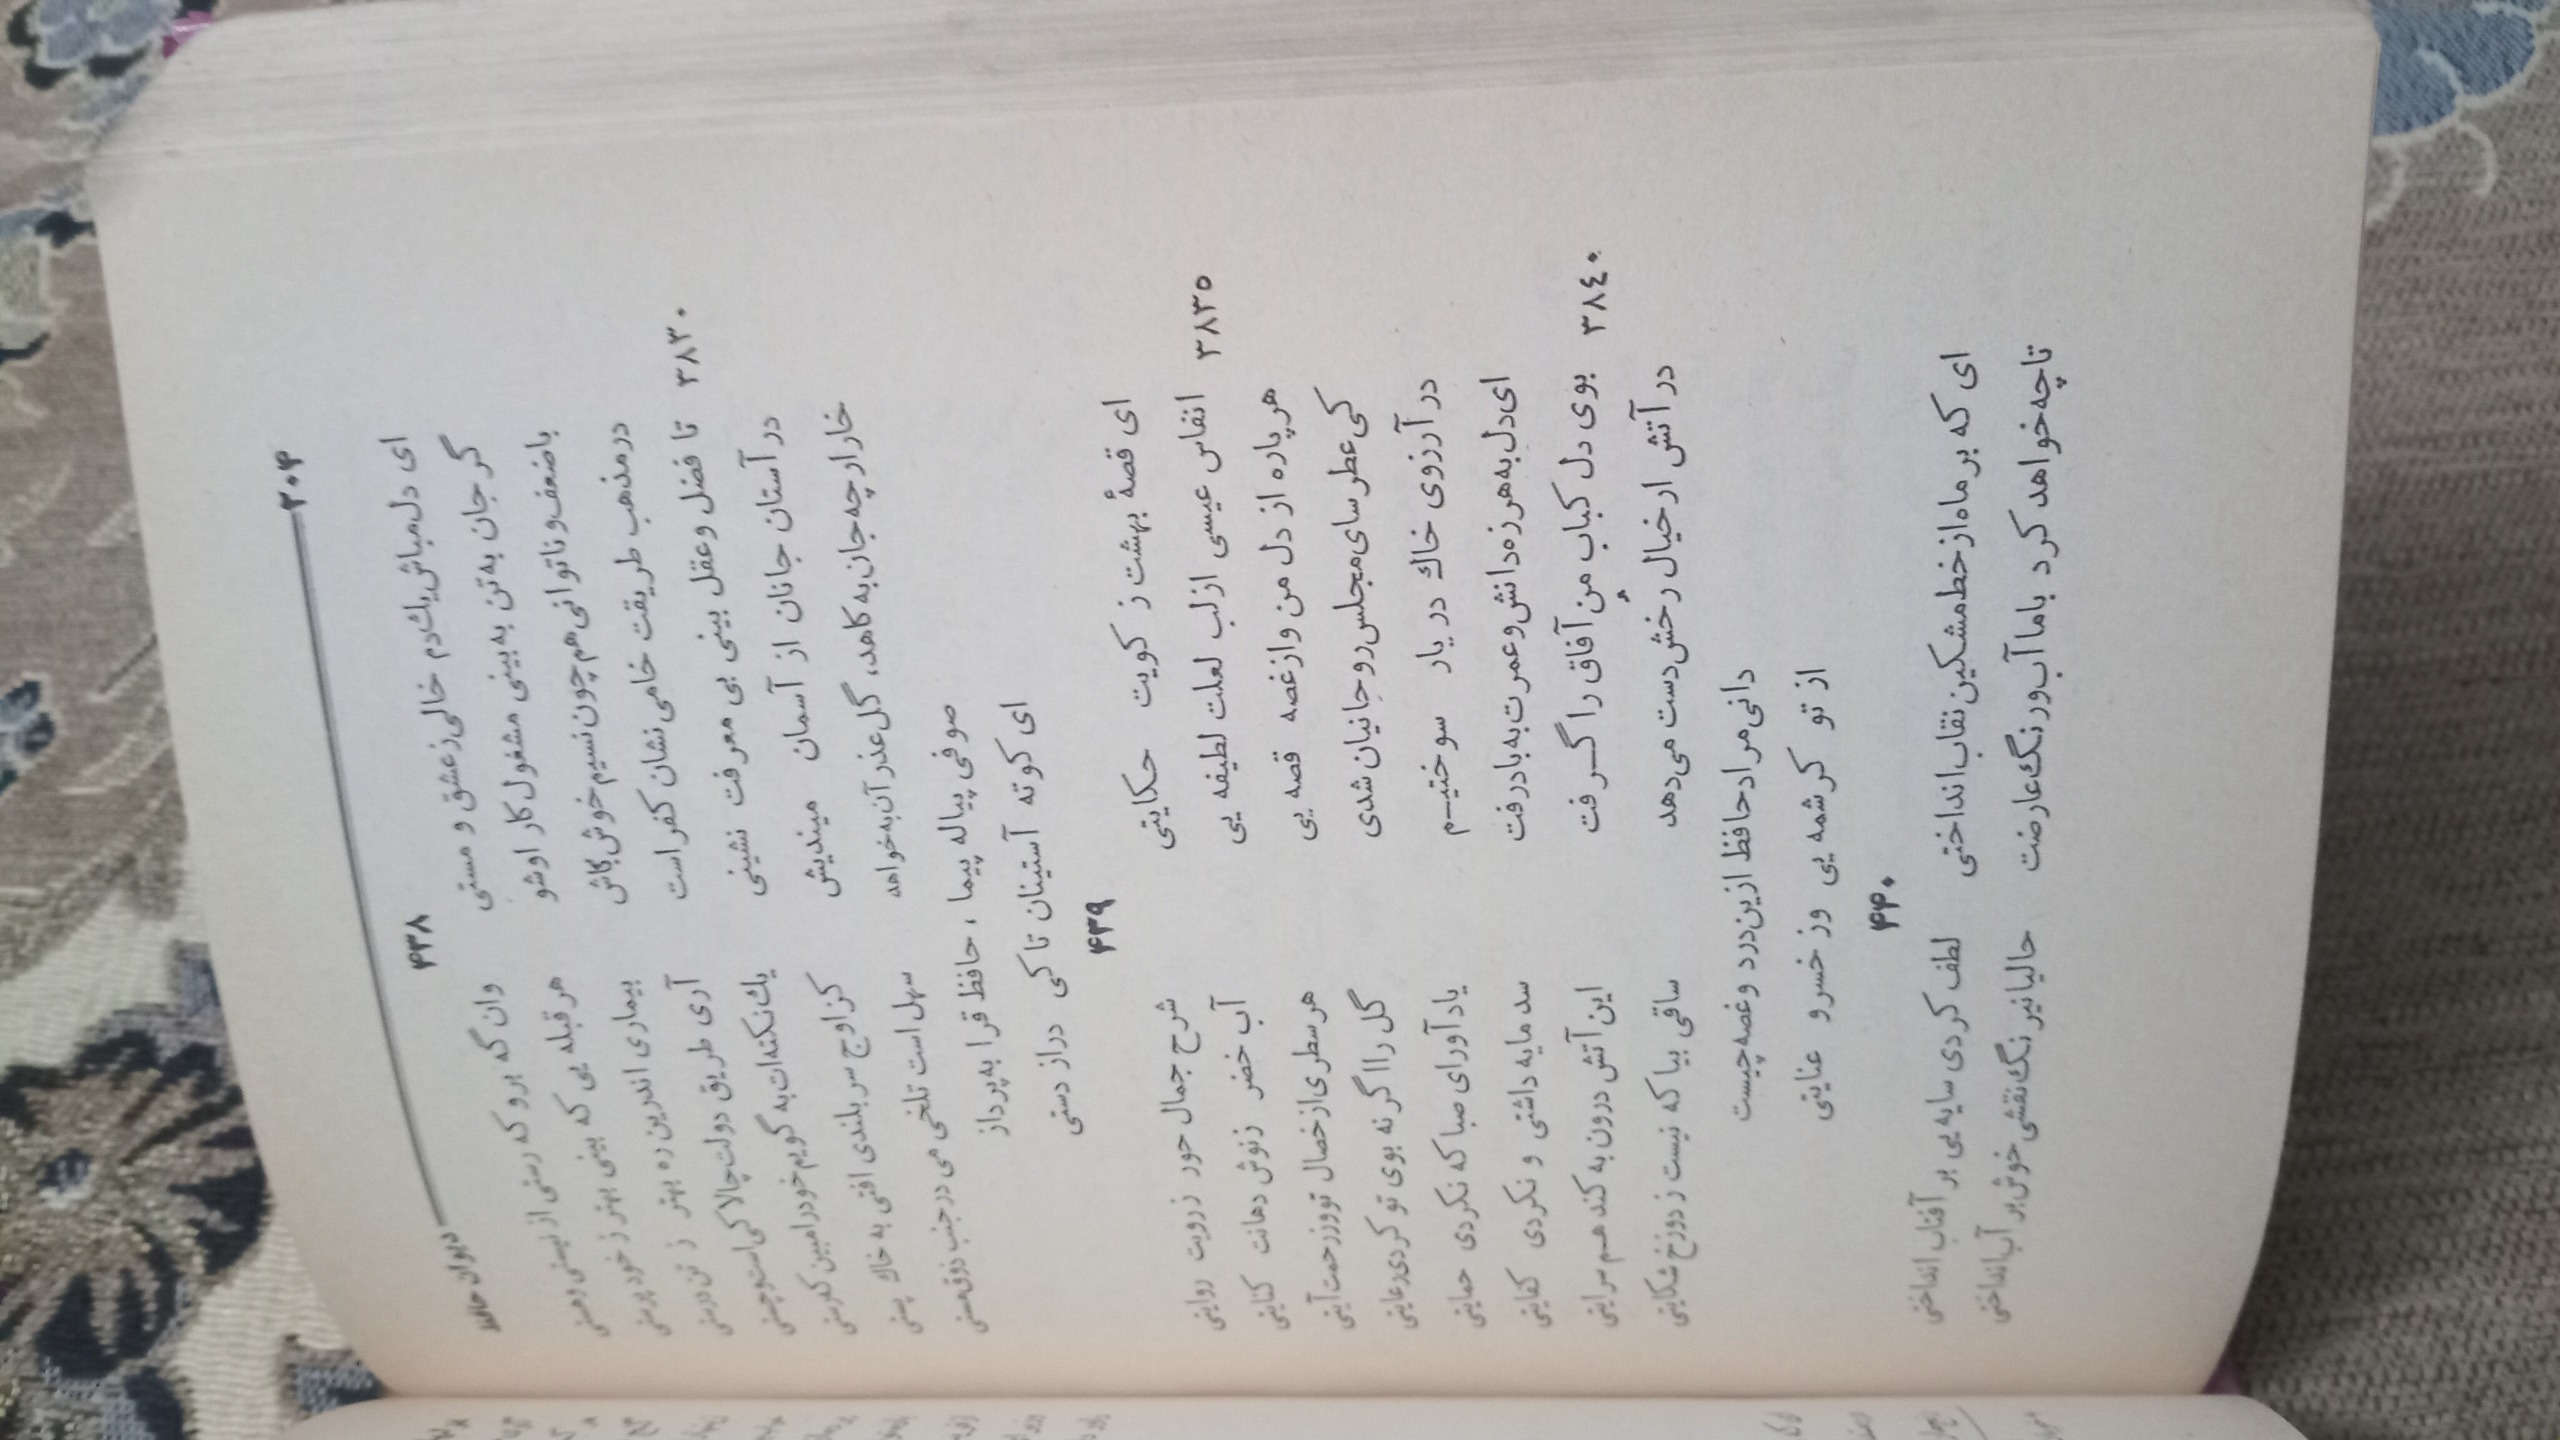 ۳۰۴ دیوان حافظ
۴۳۸
ای دل مباش یك دم خالی ز عشق و مستی وان گه برو که رستی از نیستی و هستی
گر جان به تن به بینی مشغول کار او شو هر قبله یی که بینی بهتر ز خود پرستی
با ضعف و ناتوانی هم چون نسیم خوش باش بیماری اندرین ره بهتر ز تن درستی
در مذهب طریقت خامی نشان کفر است آری طریق دولت چالاکی است و چستی
تا فضل و عقل بینی بی معرفت نشینی یك نکته ات به گویم خود را مبین که رستی
۳۸۳۰
در آستان جانان از آسمان میندیش کز اوج سر بلندی افتی به خاك پستی
خار ارچه جان به کاهد، گل عذر آن به خواهد سهل است تلخی می در جنب ذوق مستی
صوفی پیاله پیما، حافظ قرابه پرداز
ای کوته آستینان تا کی دراز دستی
۴۳۹
ای قصهٔ بهشت ز کویت حکایتی شرح جمال حور ز رویت روایتی
انفاس عیسی از لب لعلت لطیفه یی آب خضر ز نوش دهانت کنایتی
۳۸۳۵
هر پاره از دل من و از غصه قصه یی هر سطری از خصال تو وز رحمت آیتی
کی عطرسای مجلس روحانیان شدی گل را اگر نه بوی تو کردی رعایتی
در آرزوی خاك در یار سوختیم یاد آور ای صبا که نکردی حمایتی
ای دل به هرزه دانش و عمرت به باد رفت صد مایه داشتی و نکردی کفایتی
بوی دل کباب من آفاق را گرفت این آتش درون به کند هم سرایتی
۳۸۴۰
در آتش ار خیال رخش دست می دهد ساقی بیا که نیست ز دوزخ شکایتی
دانی مراد حافظ ازین درد و غصه چیست
از تو کرشمه یی وز خسرو عنایتی
۴۴۰
ای که بر ماه از خط مشکین نقاب انداختی لطف کردی سایه یی بر آفتاب انداختی
تا چه خواهد کرد با ما آب و رنگ عارضت حالیا نیرنگ نقشی خوش بر آب انداختی